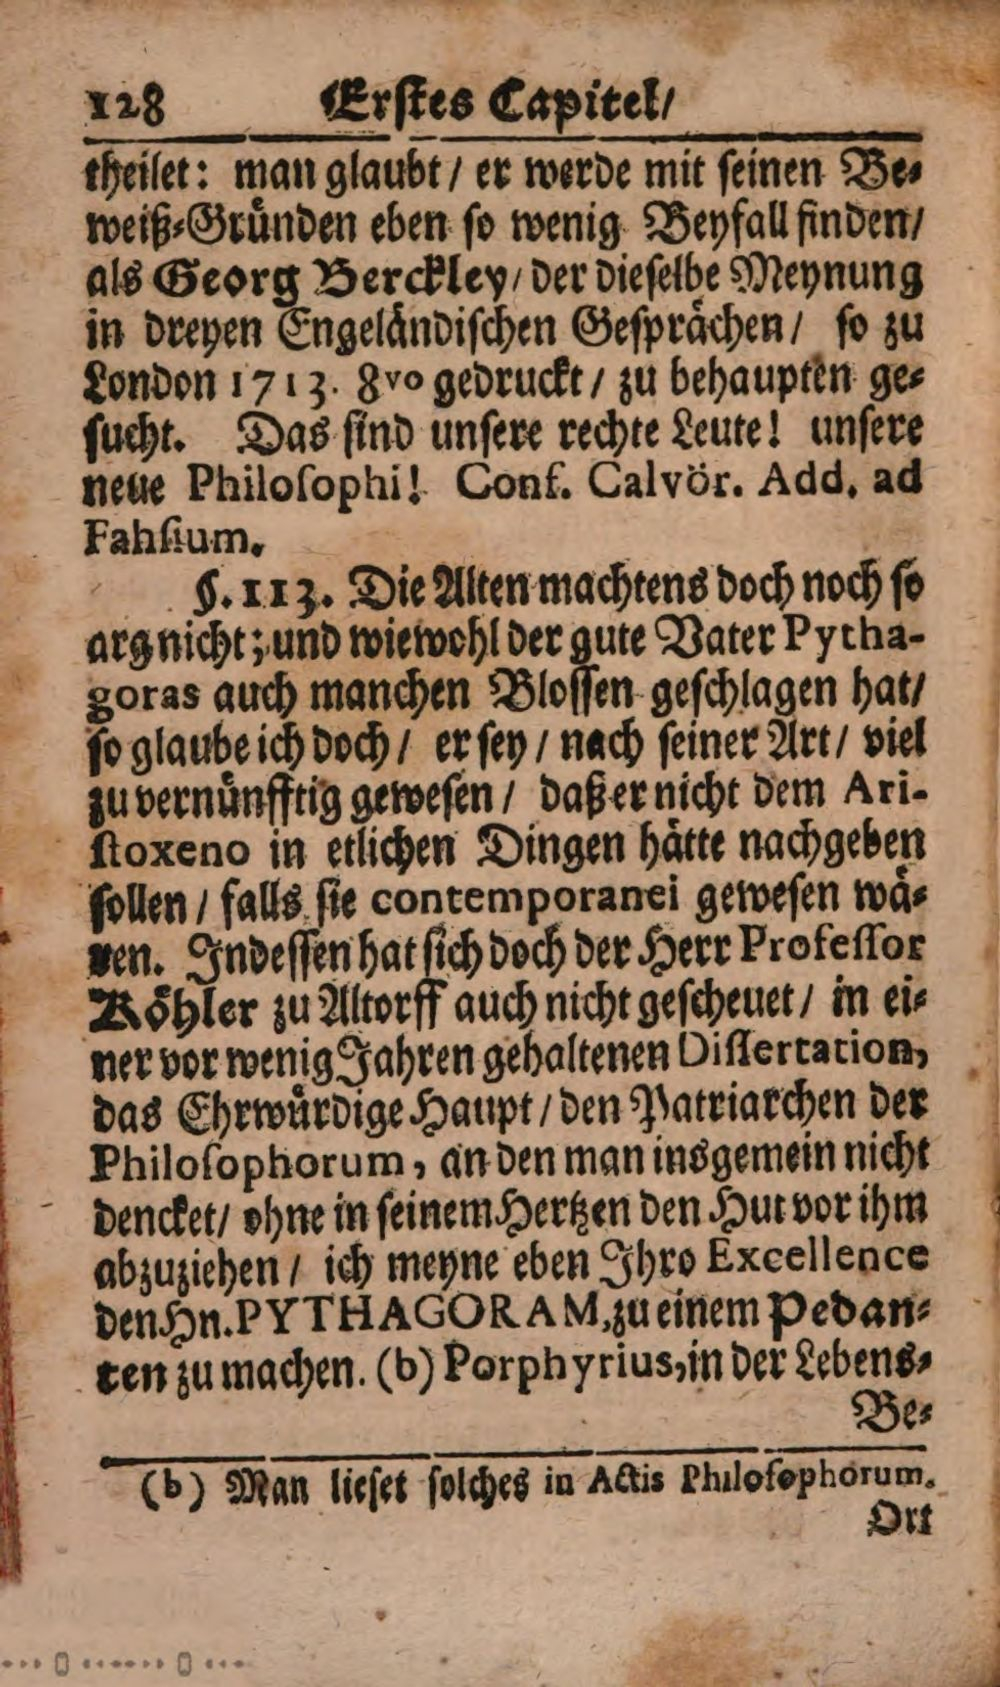 128 Erstes Capitel/
theilet: man glaubt / er werde mit seinen Be⸗
weiß⸗Gründen eben so wenig Beyfall finden/
als Georg Berckley/ der dieselbe Meynung
in dreyen Engeländischen Gesprächen / so zu
London 1713. 8vo gedruckt / zu behaupten ge⸗
sucht. Das sind unsere rechte Leute! unsere
neue Philosophi! Conf. Calvör. Add. ad
Fahsium.
§. 113. Die Alten machtens doch noch so
arg nicht; und wiewohl der gute Vater Pytha-
goras auch manchen Blossen geschlagen hat/
so glaube ich doch / er sey / nach seiner Art / viel
zu vernünfftig gewesen / daß er nicht dem Ari-
stoxeno in etlichen Dingen hätte nachgeben
sollen / falls sie contemporanei gewesen wä⸗
ren. Indessen hat sich doch der Herr Professor
Köhler zu Altorff auch nicht gescheuet / in ei⸗
ner vor wenig Jahren gehaltenen Dissertation,
das Ehrwürdige Haupt / den Patriarchen der
Philosophorum, an den man insgemein nicht
dencket/ ohne in seinem Hertzen den Hut vor ihm
abzuziehen / ich meyne eben Ihro Excellence
den Hn. PYTHAGORAM, zu einem Pedan⸗
ten zu machen. (b) Porphyrius, in der Lebens⸗
Be⸗
(b) Man lieset solches in Actis Philosophorum.
Ort